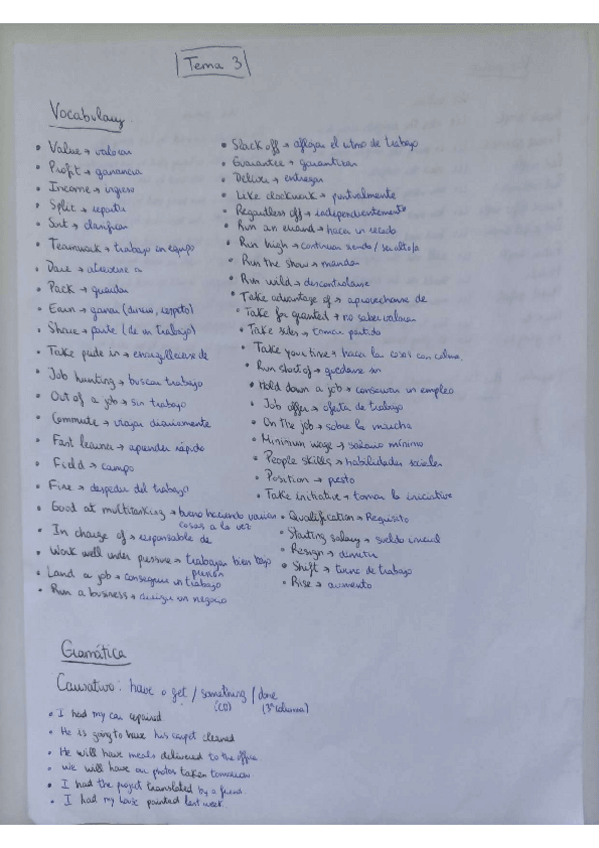 Tema 3
Vocabulary
• Value → valorar
• Profit → ganancia
• Income → ingreso
• Split → repartir
• Sort → clasificar
• Teamwork → trabajo en equipo
• Dare → atreverse a
• Pack → guardar
• Earn → ganar (dinero, respeto)
• Share → parte (de un trabajo)
• Take pride in → enorgullecerse de
• Job hunting → buscar trabajo
• Out of a job → sin trabajo
• Commute → viajar diariamente
• Fast learner → aprender rápido
• Field → campo
• Fire → despedir del trabajo
• Good at multitasking → bueno haciendo varias
cosas a la vez
• In charge of → responsable de
• Work well under pressure → trabajar bien bajo
presión
• Land a job → conseguir un trabajo
• Run a business → dirigir un negocio
• Slack off → aflojar el ritmo de trabajo
• Guarantee → garantizar
• Deliver → entregar
• Like clockwork → puntualmente
• Regardless off → independientemente
• Run an errand → hacer un recado
• Run high → continuar siendo / ser alto/a
• Run the show → mandar
• Run wild → descontrolarse
• Take advantage of → aprovecharse de
• Take for granted → no saber valorar
• Take sides → tomar partido
• Take your time → hacer las cosas con calma
• Run short of → quedarse sin
• Hold down a job → conservar un empleo
• Job offer → oferta de trabajo
• On the job → sobre la marcha
• Minimum wage → salario mínimo
• People skills → habilidades sociales
• Position → puesto
• Take initiative → tomar la iniciativa
• Qualification → Requisito
• Starting salary → sueldo inicial
• Resign → dimitir
• Shift → turno de trabajo
• Rise → aumento
Gramática
Causativo: have o get / something / done
(CD) (3ª columna)
• I had my car repaired
• He is going to have his carpet cleaned
• He will have meals delivered to the office
• we will have our photos taken tomorrow
• I had the project translated by a friend.
• I had my house painted last week.